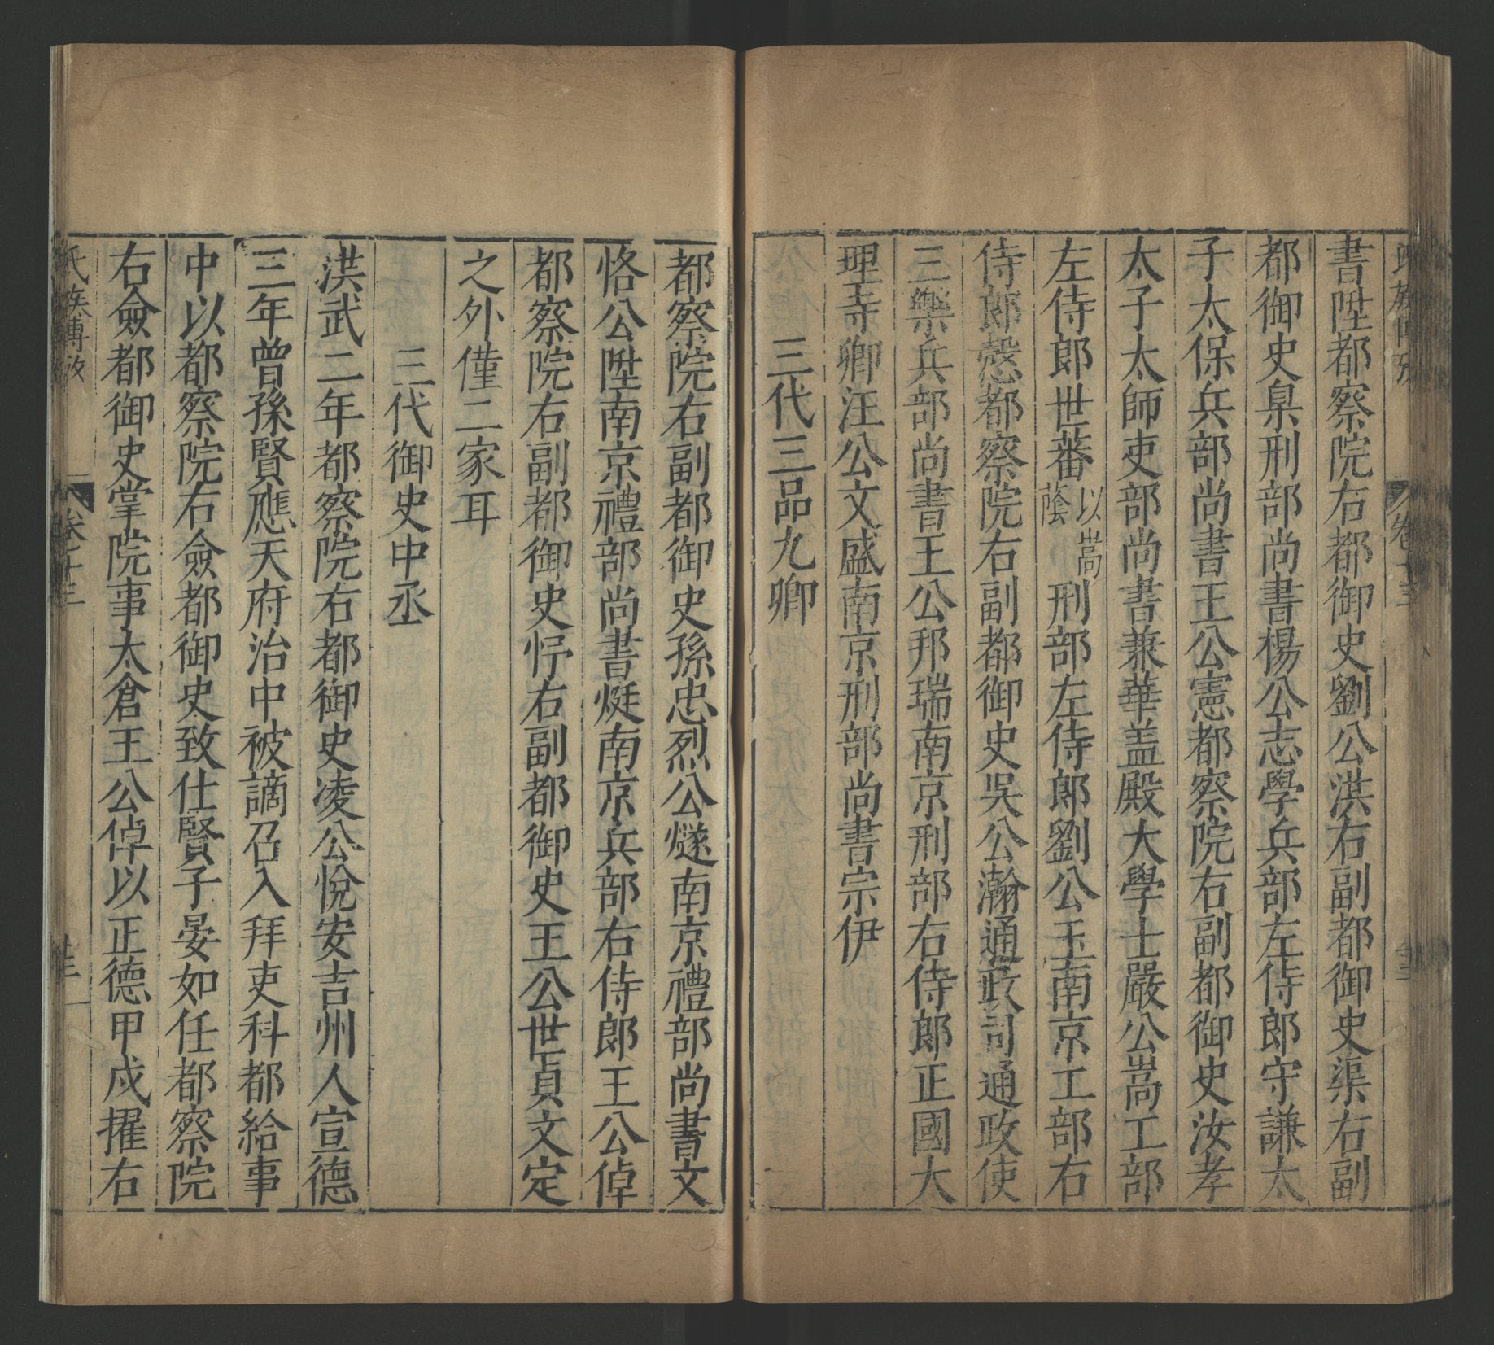 書陞都察院右都御史劉公洪右副都御史渠右副
都御史臯刑部尚書楊公志學兵部左侍郎守謙太
子太保兵部尚書王公憲都察院右副都御史汝孝
太子太師吏部尚書兼華盖殿大學士嚴公嵩工部
左侍郎世蕃以嵩蔭刑部左侍郎劉公玉南京工部右
侍郎慤都察院右副都御史吳公瀚通政司通政使
三樂兵部尚書王公邦瑞南京刑部右侍郎正國大
理寺卿汪公文盛南京刑部尚書宗伊
三代三品九卿
都察院右副都御史孫忠烈公燧南京禮部尚書文
恪公陞南京禮部尚書烶南京兵部右侍郎王公倬
都察院右副都御史忬右副都御史王公世貞文定
之外僅二家耳
三代御史中丞
洪武二年都察院右都御史凌公悅安吉州人宣德
三年曾孫賢應天府治中被謫召入拜吏科都給事
中以都察院右僉都御史致仕賢子晏如任都察院
右僉都御史掌院事太倉王公倬以正德甲戌擢右
氏族博攷 卷十三